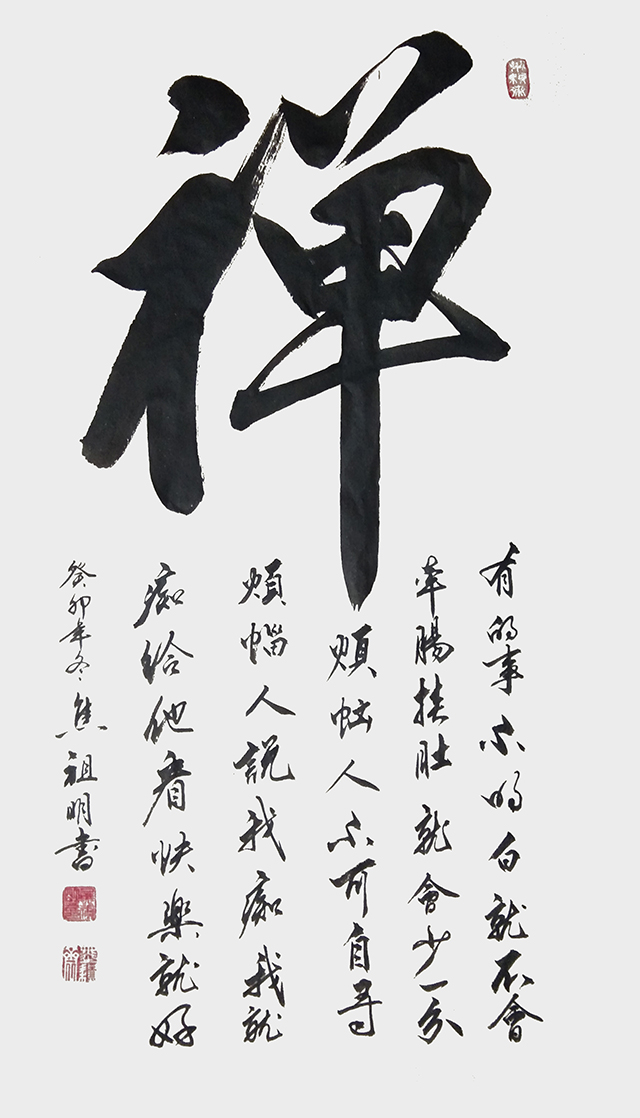 禪
有的事不明白就不會
牵腸挂肚就會少一分
煩惱人不可自尋
煩惱人説我痴我就
痴給他看快樂就好
癸卯年冬焦祖明書